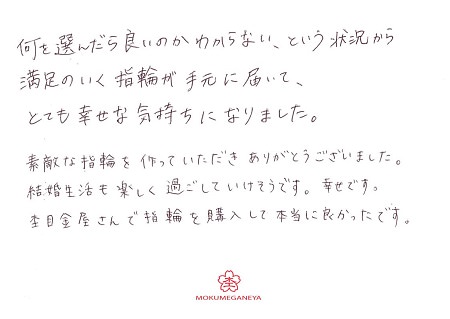 何を選んだら良いのかわからない、という状況から
満足のいく指輪が手元に届いて、
とても幸せな気持ちになりました。
素敵な指輪を作っていただきありがとうございました。
結婚生活も楽しく過ごしていけそうです。幸せです。
杢目金屋さんで指輪を購入して本当に良かったです。
杢
MOKUMEGANEYA